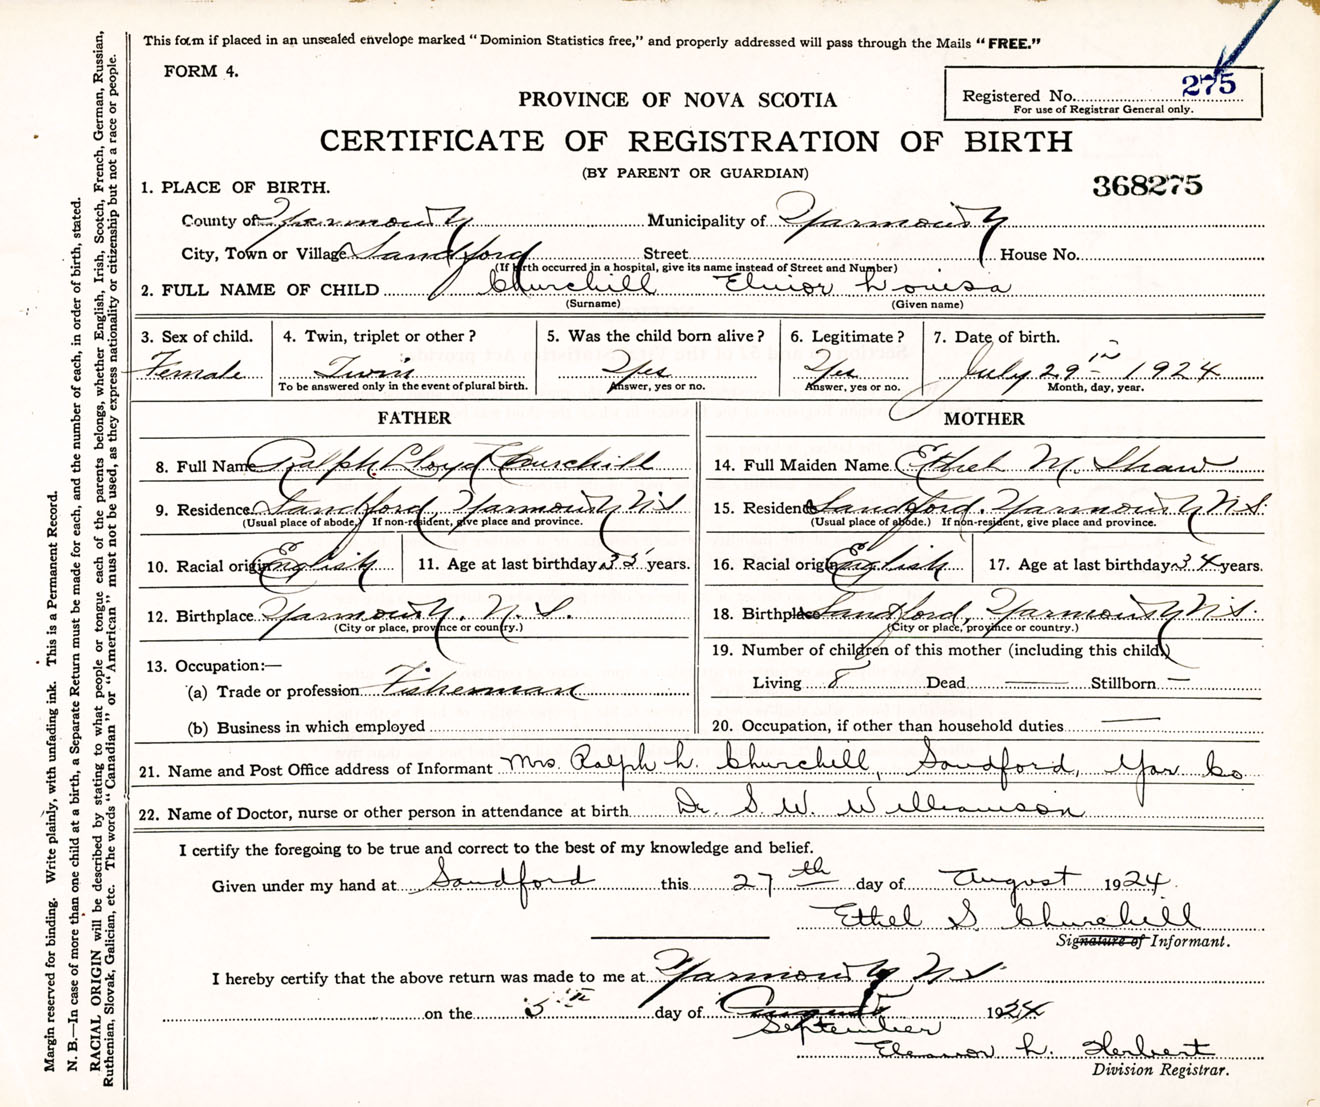 This form if placed in an unsealed envelope marked "Dominion Statistics free," and properly addressed will pass through the Mails "FREE."
FORM 4.
Registered No. 275
For use of Registrar General only.
PROVINCE OF NOVA SCOTIA
CERTIFICATE OF REGISTRATION OF BIRTH
(BY PARENT OR GUARDIAN)
368275
1. PLACE OF BIRTH.
County of Yarmouth Municipality of Yarmouth
City, Town or Village Sandford Street House No.
(If birth occurred in a hospital, give its name instead of Street and Number)
2. FULL NAME OF CHILD Churchill Elinor Louisa
(Surname) (Given name)
3. Sex of child. 4. Twin, triplet or other? 5. Was the child born alive? 6. Legitimate? 7. Date of birth.
Female Twin Yes Yes July 29th 1924
To be answered only in the event of plural birth. Answer, yes or no. Answer, yes or no. Month, day, year.
FATHER MOTHER
8. Full Name Ralph Lloyd Churchill 14. Full Maiden Name Ethel M. Shaw
9. Residence Sandford, Yarmouth N S 15. Residence Sandford, Yarmouth N S.
(Usual place of abode.) If non-resident, give place and province. (Usual place of abode.) If non-resident, give place and province.
10. Racial origin English 11. Age at last birthday 35 years. 16. Racial origin English 17. Age at last birthday 34 years.
12. Birthplace Yarmouth, N. S. 18. Birthplace Sandford, Yarmouth N S.
(City or place, province or country.) (City or place, province or country.)
13. Occupation:— 19. Number of children of this mother (including this child.)
(a) Trade or profession Fisherman Living 8 Dead — Stillborn —
(b) Business in which employed 20. Occupation, if other than household duties —
21. Name and Post Office address of Informant Mrs. Ralph L. Churchill, Sandford, Yar Co
22. Name of Doctor, nurse or other person in attendance at birth Dr. S. W. Williamson
I certify the foregoing to be true and correct to the best of my knowledge and belief.
Given under my hand at Sandford this 27th day of August 1924.
Ethel S Churchill
Signature of Informant.
I hereby certify that the above return was made to me at Yarmouth N. S.
on the 5th day of August 1924
September
Eleanor L. Herbert
Division Registrar.
Margin reserved for binding. Write plainly, with unfading ink. This is a Permanent Record.
N. B.—In case of more than one child at a birth, a Separate Return must be made for each, and the number of each, in order of birth, stated.
RACIAL ORIGIN will be described by stating to what people or tongue each of the parents belongs, whether English, Irish, Scotch, French, German, Russian,
Ruthenian, Slovak, Galician, etc. The words "Canadian" or "American" must not be used, as they express nationality or citizenship but not a race or people.